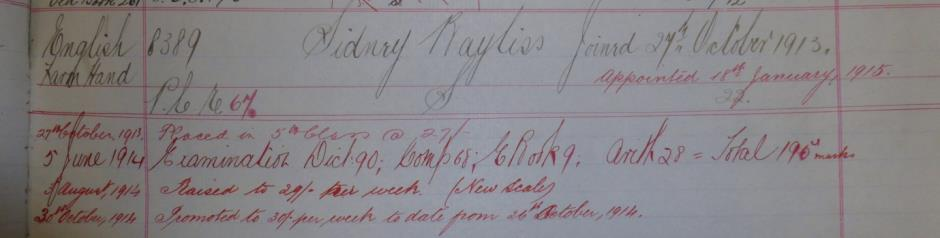 English 8389 Sidney Bayliss Joined 27th October 1913.
Farm Hand Appointed 18th January, 1915.
P.C. E 67. S 22.
27th October, 1913 Placed in 5th Class @ 27/-
5 June 1914 Examination Dict: 90; Comp 68; G Book 9; Arith 28 = Total 195 marks
August, 1914 Raised to 29/- per week. (New Scale)
30th October, 1914 Promoted to 30/- per week to date from 26th October, 1914.